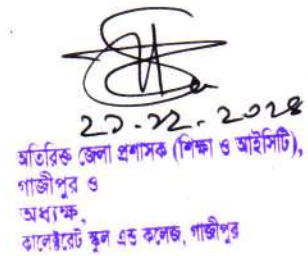 অতিরিক্ত জেলা প্রশাসক (শিক্ষা ও আইসিটি),
গাজীপুর ও
অধ্যক্ষ,
কালেক্টরেট স্কুল এন্ড কলেজ, গাজীপুর